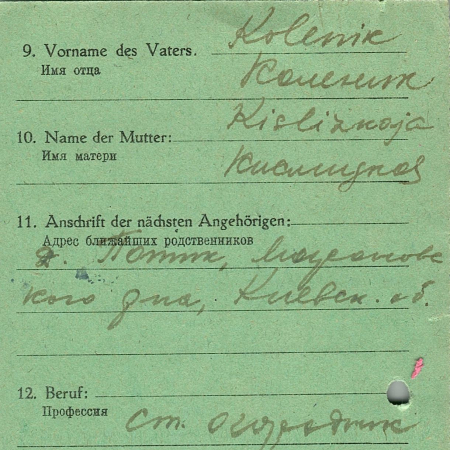 9. Vorname des Vaters.
Kolenik
Имя отца
Коленик
10. Name der Mutter:
Kislizkaja
Имя матери
Кислицкая
11. Anschrift der nächsten Angehörigen:
Адрес ближайших родственников
Поток,
кого р-на, Киевск. об.
12. Beruf:
Профессия
ст. огородник